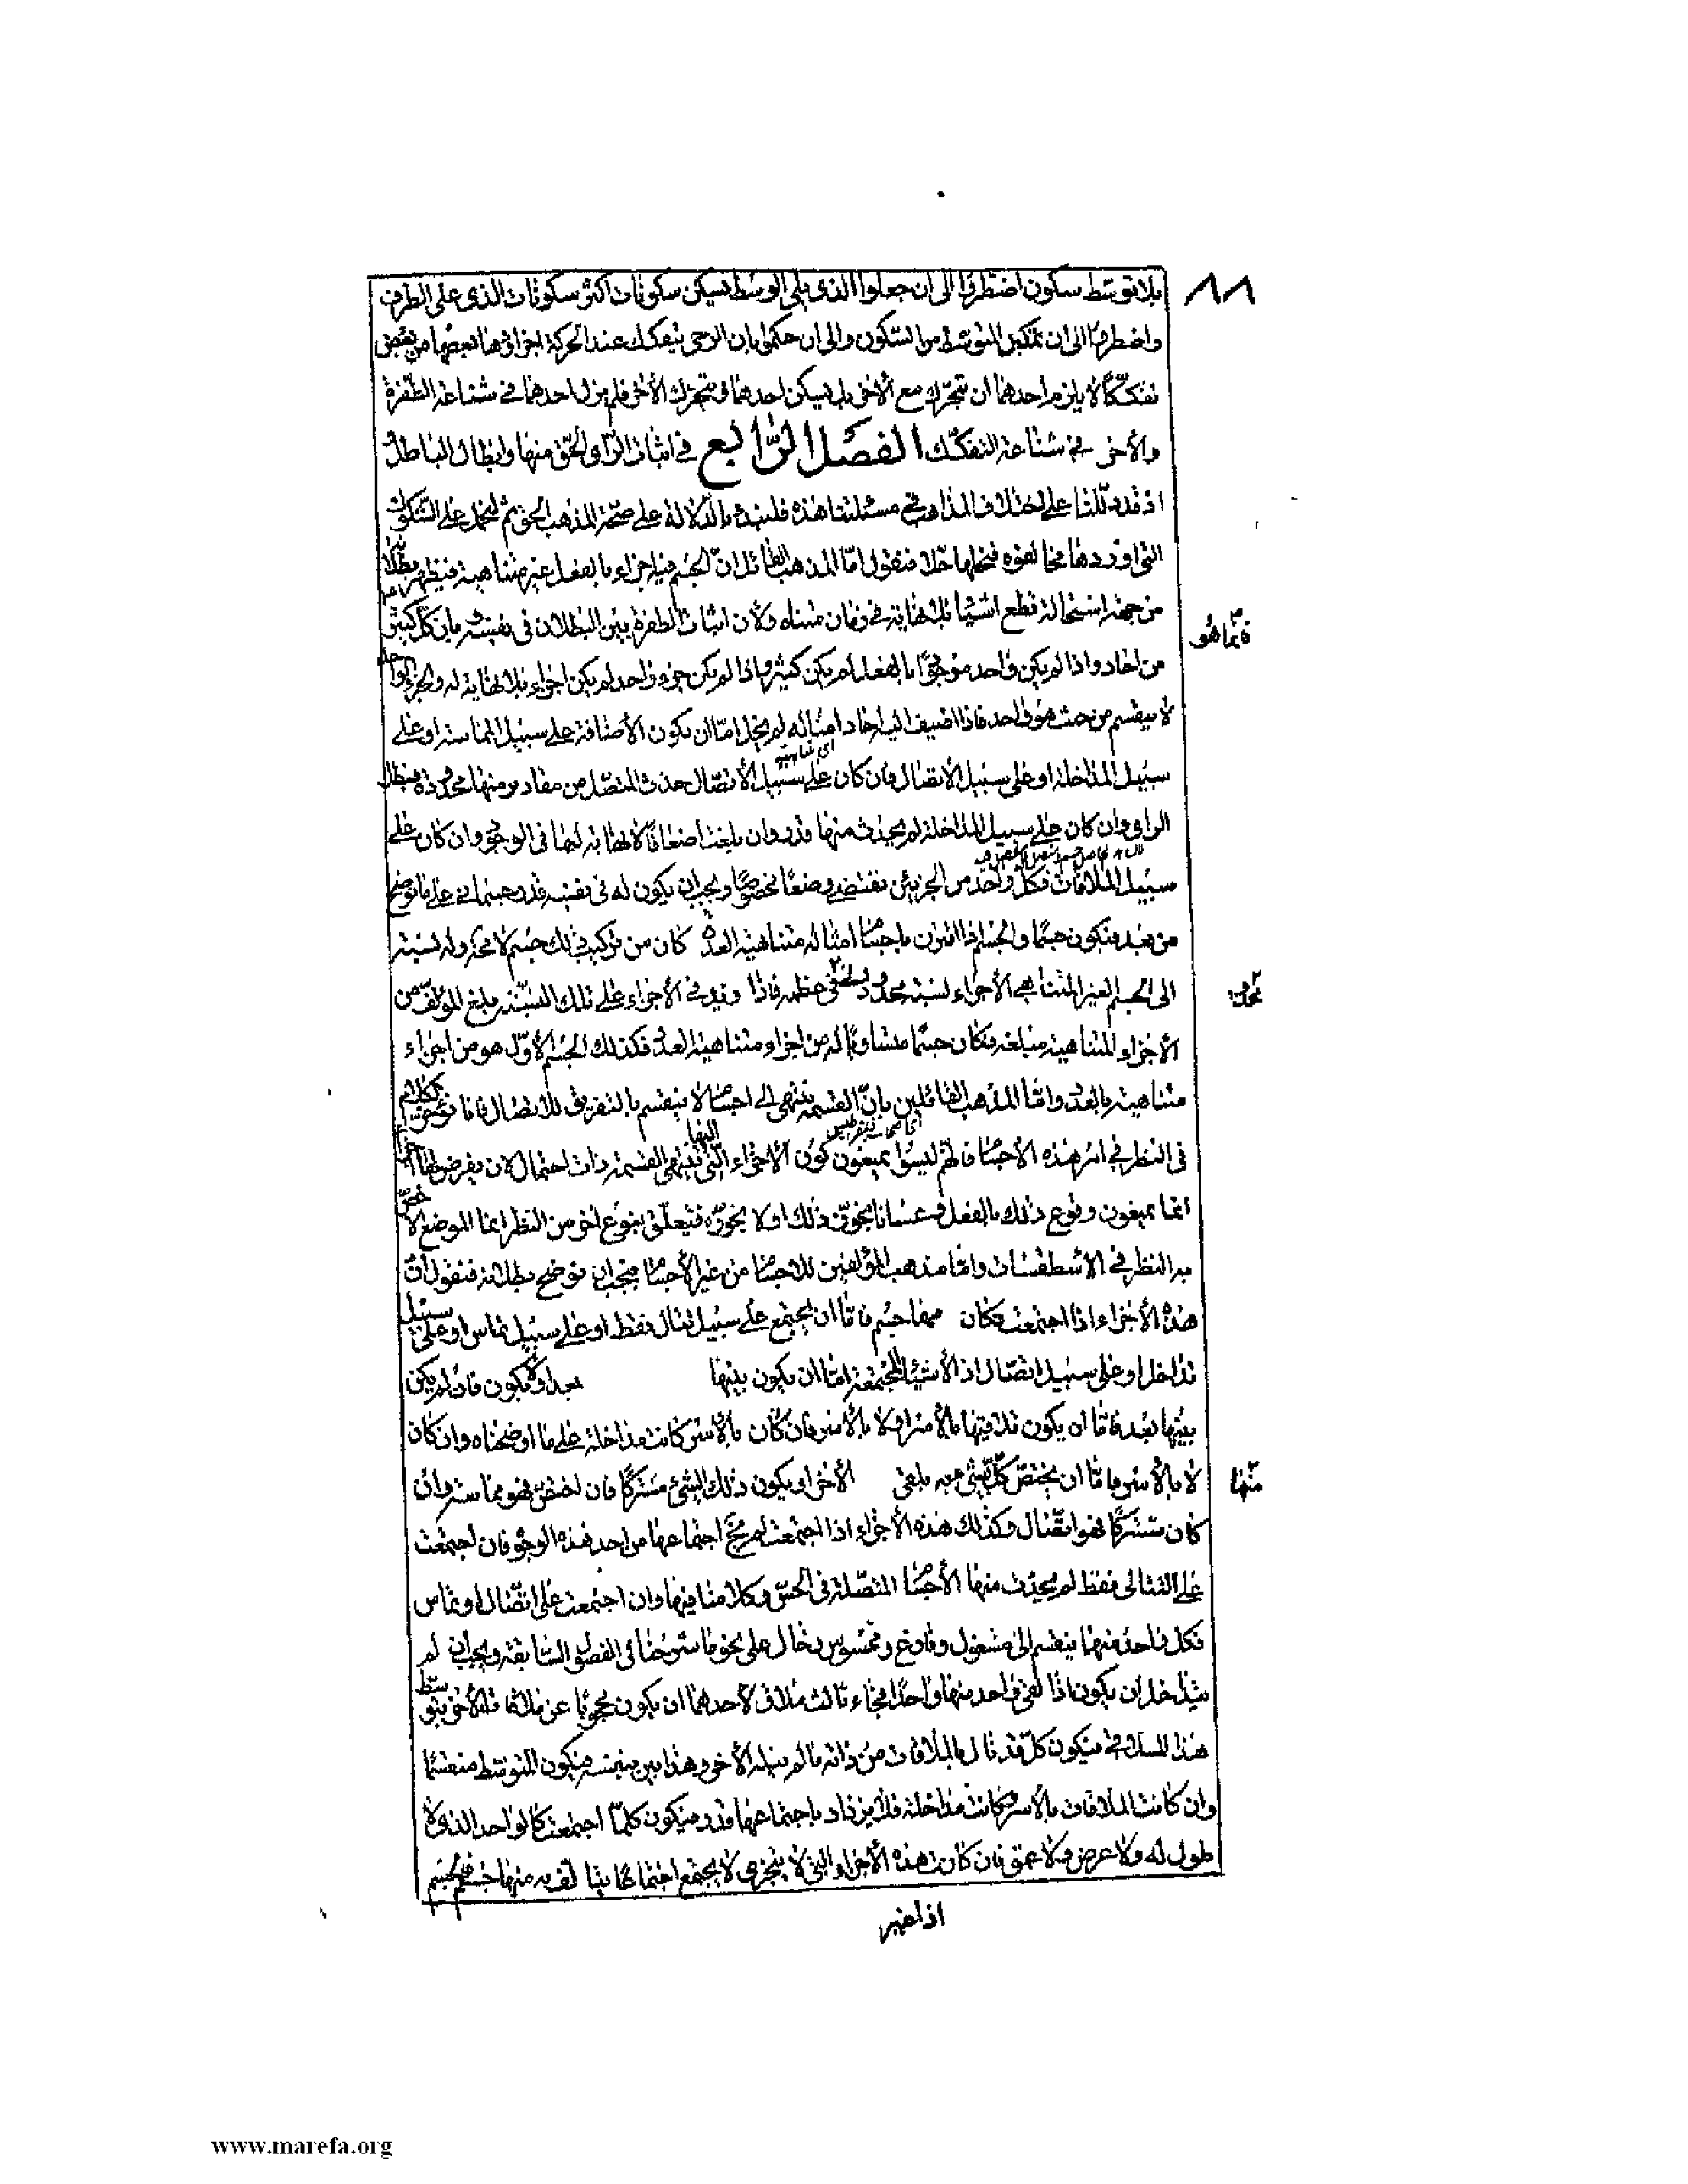 ٨٨
بلا توسط سكون اضطروا الى ان جعلوا الذى يلى الوسط يسكن سكونات اكثر سكونات الذى على الطرف
واضطروا الى ان تمكين المتوسط من السكون والى ان حكموا بان الرحى تتفكك عند الحركة اجزاؤها بعضها من بعض
تفككا لا يلزم احدهما ان تتحرك مع الأخرى بل يسكن احدهما وتتحرك الأخرى فلم يزل احدهما فى شناعة الطفرة
والأخر فى شناعة التفكك الفصل الرابع فى اثبات الراى الحق منها وابطال الباطل
اذ قد دللنا على اختلاف المذاهب فى مسئلتنا هذه فلنبدء بالدلالة على صحة المذهب الحق ثم لنحمل على الشكوك
التى اوردها مخالفوه فنحلها حلا فنقول امّا المذهب القائل ان الجسم فيه اجزاء بالفعل غير متناهية فيظهر بطلانه
من جهة استحالة قطع اشياء بلا نهاية فى زمان متناه ولأن اثبات الطفرة بين البطلان فى نفسه وبان كل كثير
فانما هو
من احاد واذا لم يكن واحد موجودا بالفعل لم يكن كثير واذا لم يكن جزو واحد لم يكن اجزاء بلا نهاية له والجزء الواحد
لا ينقسم من حيث هو واحد فاذا اضيف اليه احاد امثاله لم يخل امّا ان يكون الأضافة على سبيل المماسة او على
سبيل المداخلة او على سبيل الاتصال فان كان على سبيل الأتصال حدث المتصل من مقادير منها محدودة فبطل
الراى وان كان على سبيل المداخلة لم يحدث منها قدر وان بلغت اضعافا لا نهاية لها فى الوجود وان كان على
سبيل الملاقات فكل واحد من الجزئين يقتضى وضعا مخصوصا ويجب ان يكون له فى نفسه قدر جسمانى على ما نوضح
من بعد فيكون جسما والجسم اذا اقترن باجسام امثاله متناهية العدد كان من تركيب ذلك جسم لا محة وله نسبة
الى الجسم الغير المتناهى الأجزاء نسبة محدود فى عظمه فاذا زيد فى الأجزاء على تلك النسبة بلغ المؤلف من
الأجزاء المتناهية مبلغه فكان جسما مساويا له من اجزاء متناهية العدد فكذلك الجسم الأول هو من اجزاء
متناهية بالعدد وامّا المذهب القائلين بان القسمة تنتهى الى اجسام لا ينقسم بالتفريق للاتصال فانا نؤخر الكلام
فى النظر فى امر هذه الأجسام فانهم ليسوا يمنعون كون الأجزاء التى تنتهى اليها القسمة ذات احتمال لان يفرض لها
انما يمنعون وقوع ذلك بالفعل وعسانا نجوز ذلك او لا نجوزه فيتعلق بنوع اخر من النظر انما الموضع الأخص
به النظر فى الأسطقسات وامّا مذهب المؤلفين للاجسام من غير الأجسام فيجب ان نوضح بطلانه فنقول ان
هذه الأجزاء اذا اجتمعت فكان منها جسم فامّا ان يجتمع على سبيل تتال فقط او على سبيل تماس او على سبيل
تداخل او على سبيل اتصال اذ الأشياء المجتمعة امّا ان يكون بينها بعد او لا يكون فان لم يكن
بينها بعد فامّا ان يكون تلاقيها بالأسر او لا بالأسر فان كان بالأسر كانت مداخلة على ما اوضحناه وان كان
لا بالأسر فامّا ان يختص كل بشئ به يلقى الأخر او يكون ذلك الشئ مشتركا فان اختص فهو مماسة وان
منها
كان مشتركا فهو اتصال وكذلك هذه الأجزاء اذا اجتمعت لم يخ اجتماعها من احد هذه الوجوه فان اجتمعت
على التتالى فقط لم يحدث منها الأجسام المتصلة فى الحس وكلامنا فيها وان اجتمعت على اتصال او تماس
فكل واحد منها ينقسم الى مشغول وفارغ وممسوس وخال على نحو ما شرحنا فى الفصول السابقة ويجب ان لم
يتداخل ان يكون اذا لقى واحد منها واحدا فجاء ثالث ملاق لاحدهما ان يكون محجوبا عن ملاقاة الأخر بتوسط
هذا الملاقى فيكون كل قد نال بالملاقات من ذاته ما لم ينله الأخر وهذا بين بنفسه فيكون المتوسط منقسما
وان كانت الملاقات بالأسر فكانت مداخلة فلا يزداد باجتماعها قدر فيكون كلما اجتمعت كالواحد الذى لا
طول له ولا عرض ولا عمق فان كانت هذه الأجزاء التى لا يتجزى لا يجتمع اجتماعا بها منها جسم فالجسم
اذا غير
www.marefa.org